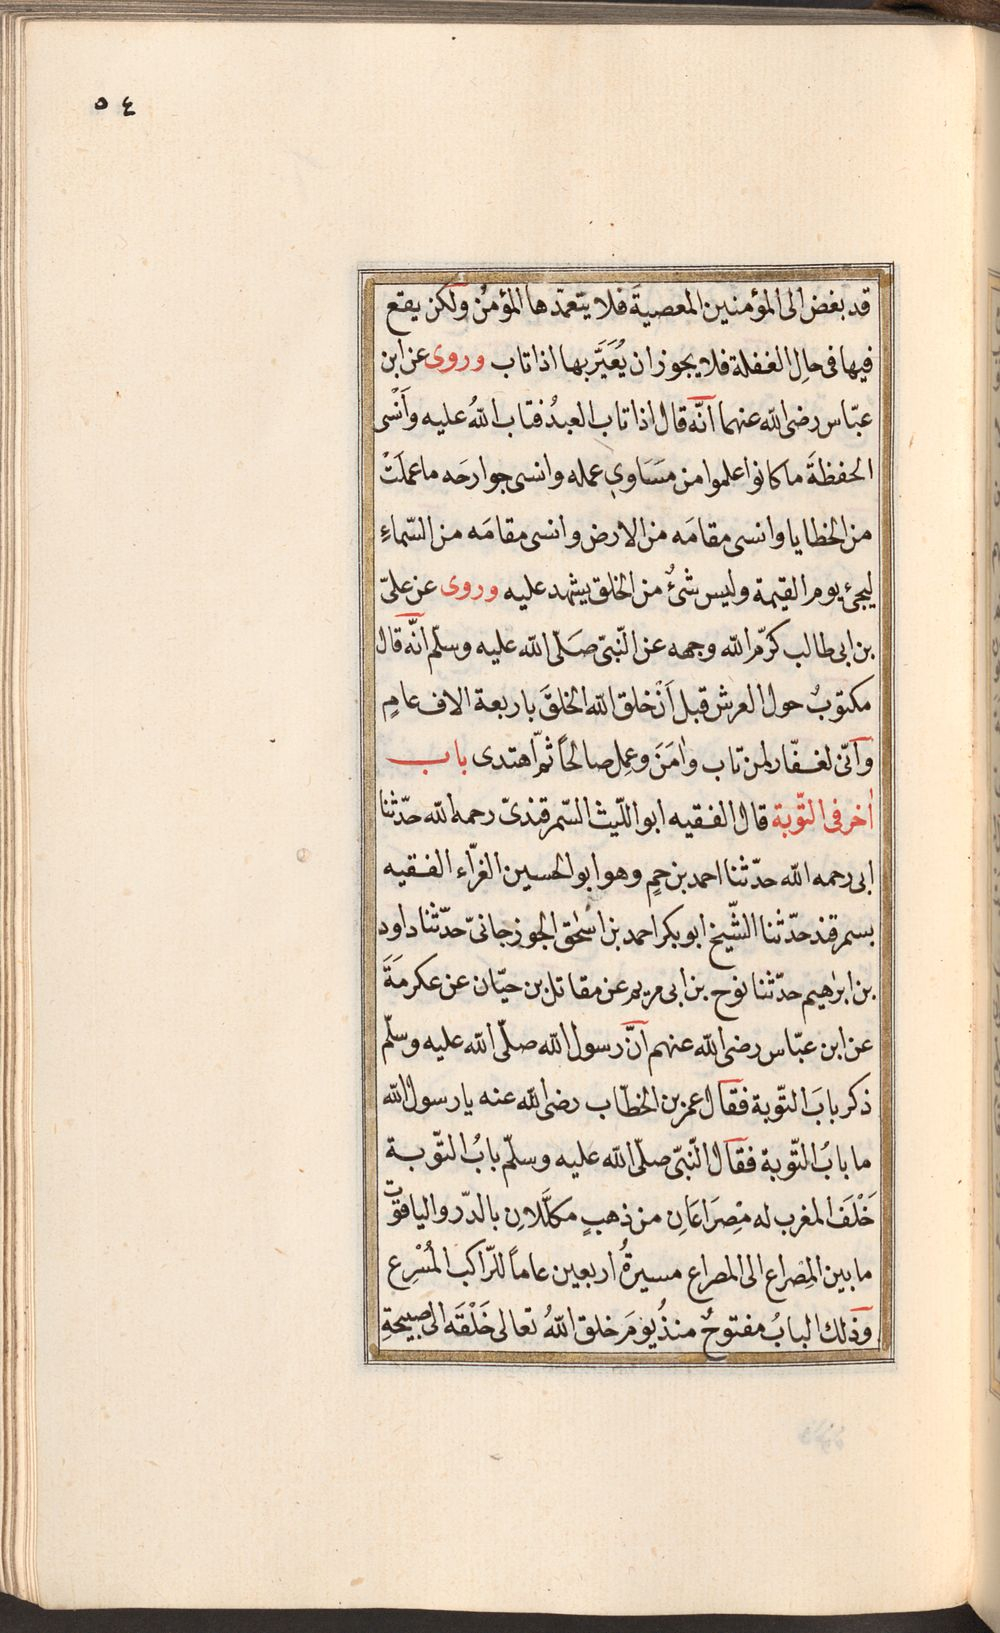 ٥٤
قد بغض الى المؤمنين المعصية فلا يتعمّدها المؤمنُ ولكن يقع
فيها فى حال الغفلة فلا يجوز ان يُعَيَّر بها اذا تاب وروى عن ابن
عبّاس رضى الله عنهما انّه قال اذا تاب العبدُ فتاب اللهُ عليه وأَنْسى
الحفظةَ ما كانوا علموا من مَسَاوىِ عمله وانسى جوارحَه ما عملَتْ
من الخطايا وانسى مقامَه من الارض وانسى مقامَه من السّماءِ
ليجئ يوم القيمة وليس شئٌ من الخلق يشهد عليه وروى عن علىّ
بن ابى طالب كرّم الله وجهه عن النّبىّ صَلّى الله عليه وسلّم انّه قال
مكتوبٌ حول العرش قبل اَنْ خلق الله الخلقَ باربعة الاف عامٍ
وانّى لغفّار لمن تاب واٰمَنَ وعمِل صالحاً ثمّ اهتدى باب
اٰخر فى التّوبة قال الفقيه ابو اللّيث السّمرقندىّ رحمه الله حدّثنا
ابى رحمه الله حدّثنا احمد بن حمٍ وهو ابو الحسين الفرّاء الفقيه
بسمرقند حدّثنا الشّيخ ابو بكر احمد بن اسْحٰق الجوزجانىّ حدّثنا داود
بن ابرٰهيم حدّثنا نوح بن ابى مريم عن مقاتل بن حيّان عن عكرمَةَ
عن ابن عبّاس رضى الله عنهم انَّ رسول الله صلّى الله عليه وسلّم
ذكر بابَ التّوبة فقال عمر بن الخطّاب رضى الله عنه يا رسول الله
ما بابُ التّوبة فقال النّبىّ صلّى الله عليه وسلّم بابُ التّوبة
خَلْفَ المغرب له مِصرَاعَانِ من ذهبٍ مكلّلانِ بالدّر والياقوت
ما بين المِصراع الى المصراع مسيرةُ اربعين عاماً للرّاكب المُسْرِع
وذلك البابُ مفتوحٌ منذُ يومَ خلق اللهُ تعالى خَلْقَه الى صبيحةِ